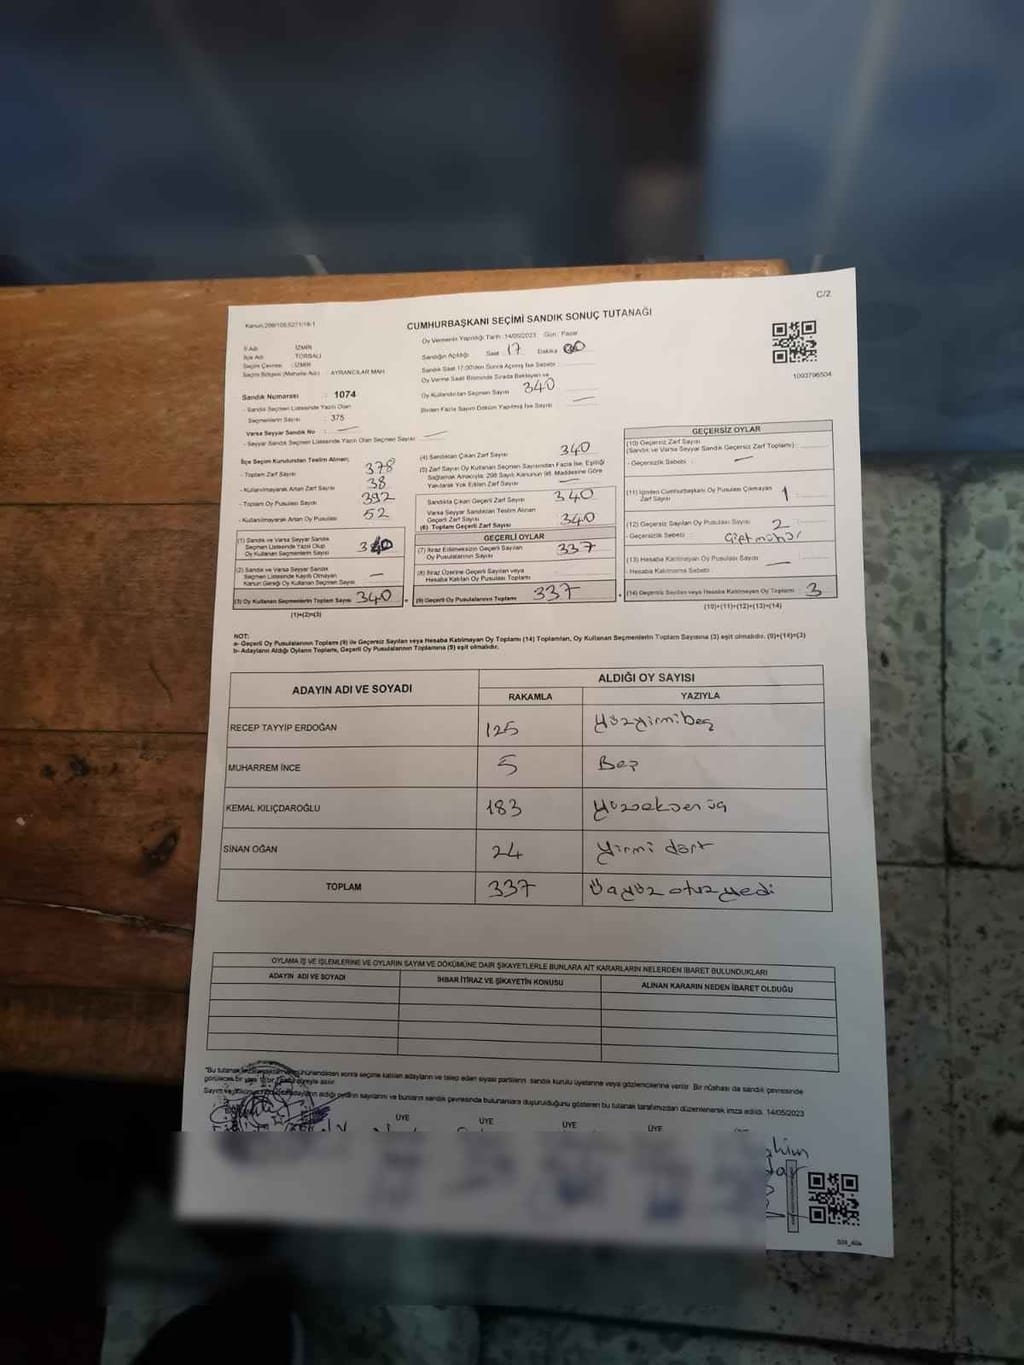 C/2
Kanun:298/105,5271/16-1
CUMHURBAŞKANI SEÇİMİ SANDIK SONUÇ TUTANAĞI
1093796504
İl Adı : İZMİR
İlçe Adı : TORBALI
Seçim Çevresi : İZMİR
Seçim Bölgesi (Mahalle Adı) : AYRANCILAR MAH
Sandık Numarası : 1074
- Sandık Seçmen Listesinde Yazılı Olan
Seçmenlerin Sayısı : 375
Varsa Seyyar Sandık No :
- Seyyar Sandık Seçmen Listesinde Yazılı Olan Seçmen Sayısı :
Oy Vermenin Yapıldığı Tarih :14/05/2023 Gün : Pazar
Sandığın Açıldığı Saat : 17 Dakika 00
Sandık Saat 17:00'den Sonra Açılmış İse Sebebi :
Oy Verme Saati Bitiminde Sırada Bekleyen ve
Oy Kullandırılan Seçmen Sayısı : 340
Birden Fazla Sayım Döküm Yapılmış İse Sayısı :
İlçe Seçim Kurulundan Teslim Alınan;
- Toplam Zarf Sayısı : 378
- Kullanılmayarak Artan Zarf Sayısı : 38
- Toplam Oy Pusulası Sayısı : 392
- Kullanılmayarak Artan Oy Pusulası : 52
(1) Sandık ve Varsa Seyyar Sandık
Seçmen Listesinde Yazılı Olup
Oy Kullanan Seçmenlerin Sayısı : 340
(2) Sandık ve Varsa Seyyar Sandık
Seçmen Listesinde Kayıtlı Olmayan
Kanun Gereği Oy Kullanan Seçmen Sayısı :
(3) Oy Kullanan Seçmenlerin Toplam Sayısı : 340
(1)+(2)=(3)
(4) Sandıktan Çıkan Zarf Sayısı : 340
(5) Zarf Sayısı Oy Kullanan Seçmen Sayısından Fazla İse, Eşitliği
Sağlamak Amacıyla; 298 Sayılı Kanunun 98. Maddesine Göre
Yakılarak Yok Edilen Zarf Sayısı :
Sandıkta Çıkan Geçerli Zarf Sayısı : 340
Varsa Seyyar Sandıktan Teslim Alınan
Geçerli Zarf Sayısı :
(6) Toplam Geçerli Zarf Sayısı : 340
GEÇERLİ OYLAR
(7) İtiraz Edilmeksizin Geçerli Sayılan
Oy Pusulalarının Sayısı : 337
(8) İtiraz Üzerine Geçerli Sayılan veya
Hesaba Katılan Oy Pusulası Toplamı :
(9) Geçerli Oy Pusulalarının Toplamı : 337
GEÇERSİZ OYLAR
(10) Geçersiz Zarf Sayısı
(Sandık ve Varsa Seyyar Sandık Geçersiz Zarf Toplamı) :
- Geçersizlik Sebebi :
(11) İçinden Cumhurbaşkanı Oy Pusulası Çıkmayan
Zarf Sayısı : 1
(12) Geçersiz Sayılan Oy Pusulası Sayısı : 2
- Geçersizlik Sebebi : Çift mühür
(13) Hesaba Katılmayan Oy Pusulası Sayısı :
- Hesaba Katılmama Sebebi :
(14) Geçersiz Sayılan veya Hesaba Katılmayan Oy Toplamı : 3
(10)+(11)+(12)+(13)=(14)
NOT:
a- Geçerli Oy Pusulalarının Toplamı (9) ile Geçersiz Sayılan veya Hesaba Katılmayan Oy Toplamı (14) Toplamları, Oy Kullanan Seçmenlerin Toplam Sayısına (3) eşit olmalıdır. (9)+(14)=(3)
b- Adayların Aldığı Oyların Toplamı, Geçerli Oy Pusulalarının Toplamına (9) eşit olmalıdır.
ADAYIN ADI VE SOYADI ALDIĞI OY SAYISI
RAKAMLA YAZIYLA
RECEP TAYYİP ERDOĞAN 125 Yüzyirmibeş
MUHARREM İNCE 5 Beş
KEMAL KILIÇDAROĞLU 183 Yüzseksenüç
SİNAN OĞAN 24 Yirmi dört
TOPLAM 337 Üçyüz otuzyedi
OYLAMA İŞ VE İŞLEMLERİNE VE OYLARIN SAYIM VE DÖKÜMÜNE DAİR ŞİKAYETLERLE BUNLARA AİT KARARLARIN NELERDEN İBARET BULUNDUKLARI
ADAYIN ADI VE SOYADI İHBAR İTİRAZ VE ŞİKAYETİN KONUSU ALINAN KARARIN NEDEN İBARET OLDUĞU
"Bu tutanak sonra seçime katılan adayların ve talep eden siyasi partilerin sandık kurulu üyelerine veya gözlemcilerine verilir. Bir nüshası da sandık çevresinde
görülecek bir yere
aldığı oyların sayılarını ve bunların sandık çevresinde bulunanlara duyurulduğunu gösteren bu tutanak tarafımızdan düzenlenerek imza edildi. 14/05/2023
ÜYE ÜYE ÜYE ÜYE